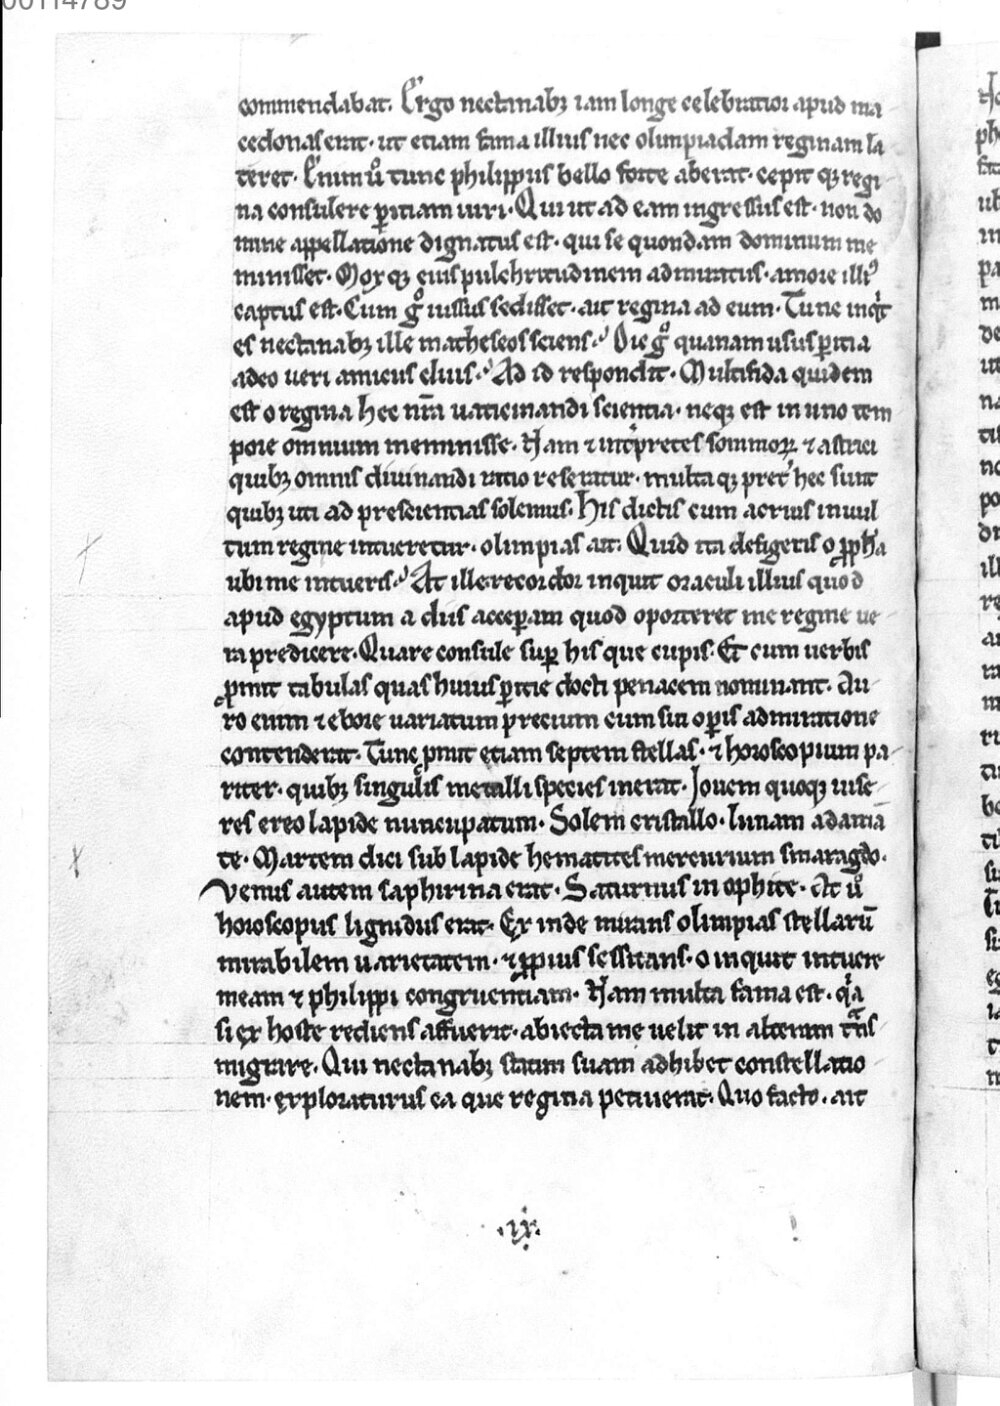 00114789
commendabat. Ergo nectanabꝫ iam longe celebratior apud ma
cedonas erat. ut etiam fama illius nec olimpiadam reginam la
teret. Enim ů tunc philippus bello forte aberat. cepit qꝫ regi
na consulere ꝑitiam uiri. Qui ut ad eam ingressus est. non do
mine appellatione dignatus est. qui se quondam dominum me
minisset. Mox qꝫ eius pulchritudinem admiratus. amore illiꝰ
captus est. Cum gͦ iussus sedisset. ait regina ad eum. Tune inqͥt
es nectanabꝫ ille matheseos sciens. Dic gͦ quanam usus ꝑitia
adeo ueri amicus cluis. Ad id respondit. Multifida quidem
est o regina hec nr̄a uaticinandi scientia. neqꝫ est in uno tem
pore omnium meminisse. Nam ⁊ int̛pretes somnioꝝ ⁊ astrici
quibꝫ omnis diuinandi ratio reseratur. multa qꝫ pret̛ hec sunt
quibꝫ uti ad prescientias solemus. His dictis cum acrius in uul
tum regine intueretur. olimpias ait. Quid ita defigeris o ꝓph̛a
ubi me intueris. At ille recordor inquit oraculi illius quod
apud egyptum a diis acceꝑam quod oporteret me regine ue
ra predicere. Quare consule suꝑ his que cupis. Et cum uerbis
ꝓmit tabulas quas huius ꝑitie docti penacem nominant. Au
ro enim ⁊ ebore uariatum precium cum sui oꝑis admiratione
contenderat. Tunc ꝓmit etiam septem stellas. ⁊ horoscopium pa
riter. quibꝫ singulis metalli species inerat. Jouem quoqꝫ uise
res ereo lapide nuncupatum. Solem cristallo. lunam adamā
te. Martem dici sub lapide hematites mercurium smaragdo.
Venus autem saphirina erat. Saturnus in ophite. At ů
horoscopus lignidus erat. Ex inde mirans olimpias stellarū
mirabilem uarietatem. ⁊ ꝓpius sessitans. o inquit intuere
meam ⁊ philippi congruentiam. Nam multa fama est. qͥa
si ex hoste rediens affuerit. abiecta me uelit in alterius tͣns
migrare. Qui nectanabꝫ statim suam adhibet constellatio
nem. exploraturus ea que regina petiuerat. Quo facto. ait
.ix.